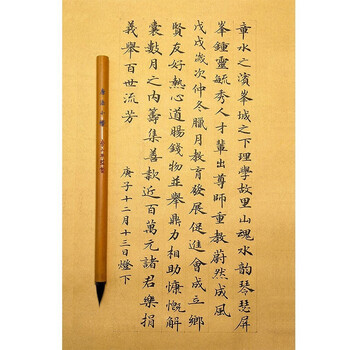 章水之濱峯城之下理學故里山魂水韵琴瑟屏
峯鍾靈毓秀人才輩出尊師重教蔚然成風
戊戌歲次仲冬臘月教育發展促進會成立鄉
賢友好熱心道賜錢物並舉鼎力相助慷慨解
囊數月之內籌集善款近百萬元諸君樂捐
義舉百世流芳
庚子十二月十三日燈下